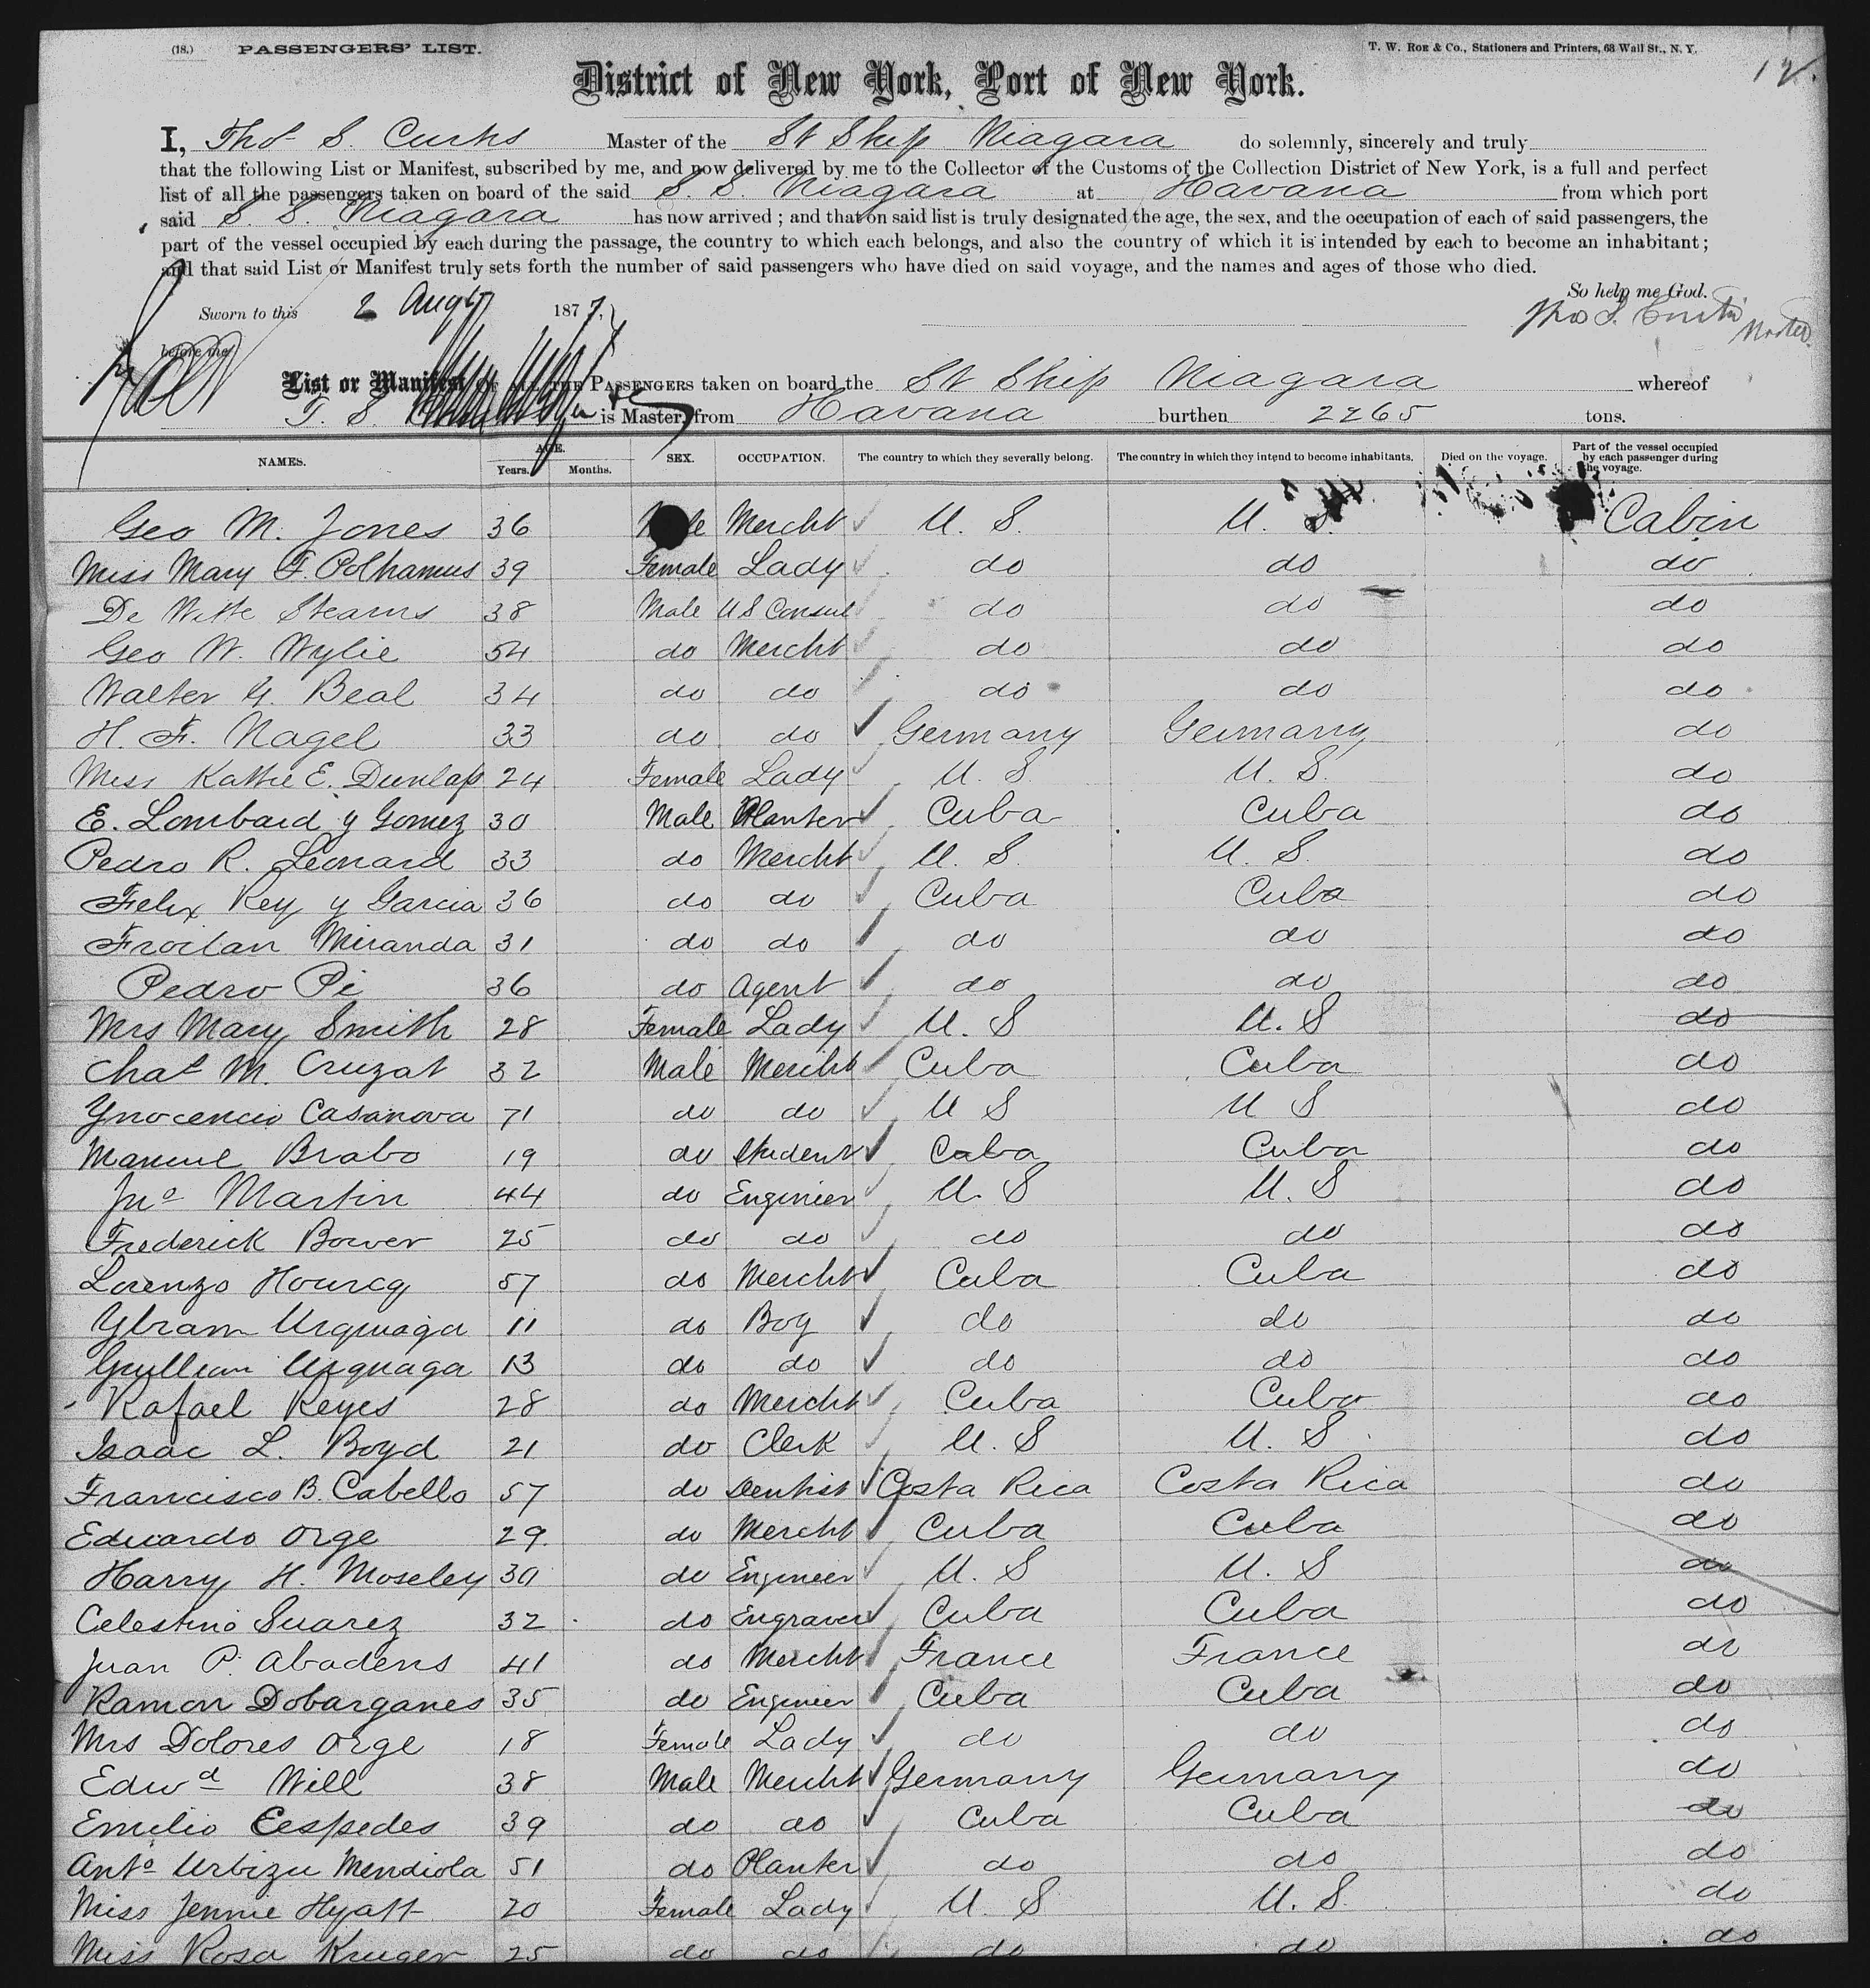 (18.) PASSENGERS' LIST. T. W. ROE & Co., Stationers and Printers, 63 Wall St., N. Y.
District of New York, Port of New York.
I, Thos S. Curtis Master of the St Ship Niagara do solemnly, sincerely and truly
that the following List or Manifest, subscribed by me, and now delivered by me to the Collector of the Customs of the Collection District of New York, is a full and perfect
list of all the passengers taken on board of the said S. S. Niagara at Havana from which port
said S. S. Niagara has now arrived; and that on said list is truly designated the age, the sex, and the occupation of each of said passengers, the
part of the vessel occupied by each during the passage, the country to which each belongs, and also the country of which it is intended by each to become an inhabitant;
and that said List or Manifest truly sets forth the number of said passengers who have died on said voyage, and the names and ages of those who died.
So help me God.
Sworn to this 2 Augt 1877. Thos S. Curtis Master
before me
List or Manifest OF ALL THE PASSENGERS taken on board the St Ship Niagara whereof
T. S. is Master, from Havana burthen 2265 tons.
NAMES. AGE. Years. Months. SEX. OCCUPATION. The country to which they severally belong. The country in which they intend to become inhabitants. Died on the voyage. Part of the vessel occupied by each passenger during the voyage.
Geo M. Jones 36 Male Mercht U. S. U. S. Cabin
Miss Mary F. Polhamus 39 Female Lady do do do
De Witte Stearns 38 Male U S Consul do do do
Geo W. Wylie 54 do Mercht do do do
Walter G. Beal 34 do do do do do
H. F. Nagel 33 do do Germany Germany do
Miss Kattie E. Dunlap 24 Female Lady U. S. U. S. do
E. Lombard y Gomez 30 Male Planter Cuba Cuba do
Pedro R. Leonard 33 do Mercht U. S. U. S. do
Felix Rey y Garcia 36 do do Cuba Cuba do
Froilan Miranda 31 do do do do do
Pedro Pi 36 do Agent do do do
Mrs Mary Smith 28 Female Lady U. S U. S do
Chas M. Cruzat 32 Male Mercht Cuba Cuba do
Ynocencio Casanova 71 do do U S U S do
Manuel Brabo 19 do Student Cuba Cuba do
Jno Martin 44 do Engineer U. S U. S do
Frederick Bower 25 do do do do do
Lorenzo Hourcq 57 do Mercht Cuba Cuba do
Ybram Urquiaga 11 do Boy do do do
Gullian Urquaga 13 do do do do do
Rafael Reyes 28 do Mercht Cuba Cuba do
Isaac L. Boyd 21 do Clerk U. S U. S do
Francisco B. Cabello 57 do Dentist Costa Rica Costa Rica do
Eduardo Orge 29. do Mercht Cuba Cuba do
Harry H. Moseley 30 do Engineer U. S U. S do
Celestino Suarez 32 do Engraver Cuba Cuba do
Juan P. Abadens 41 do Mercht France France do
Ramon Dobarganes 35 do Engineer Cuba Cuba do
Mrs Dolores Orge 18 Female Lady do do do
Edwd Will 38 Male Mercht Germany Germany do
Emilio Cespedes 39 do do Cuba Cuba do
Anto Urbizu Mendiola 51 do Planter do do do
Miss Jennie Hyatt 20 Female Lady U. S U. S. do
Miss Rosa Kruger 25 do do do do do